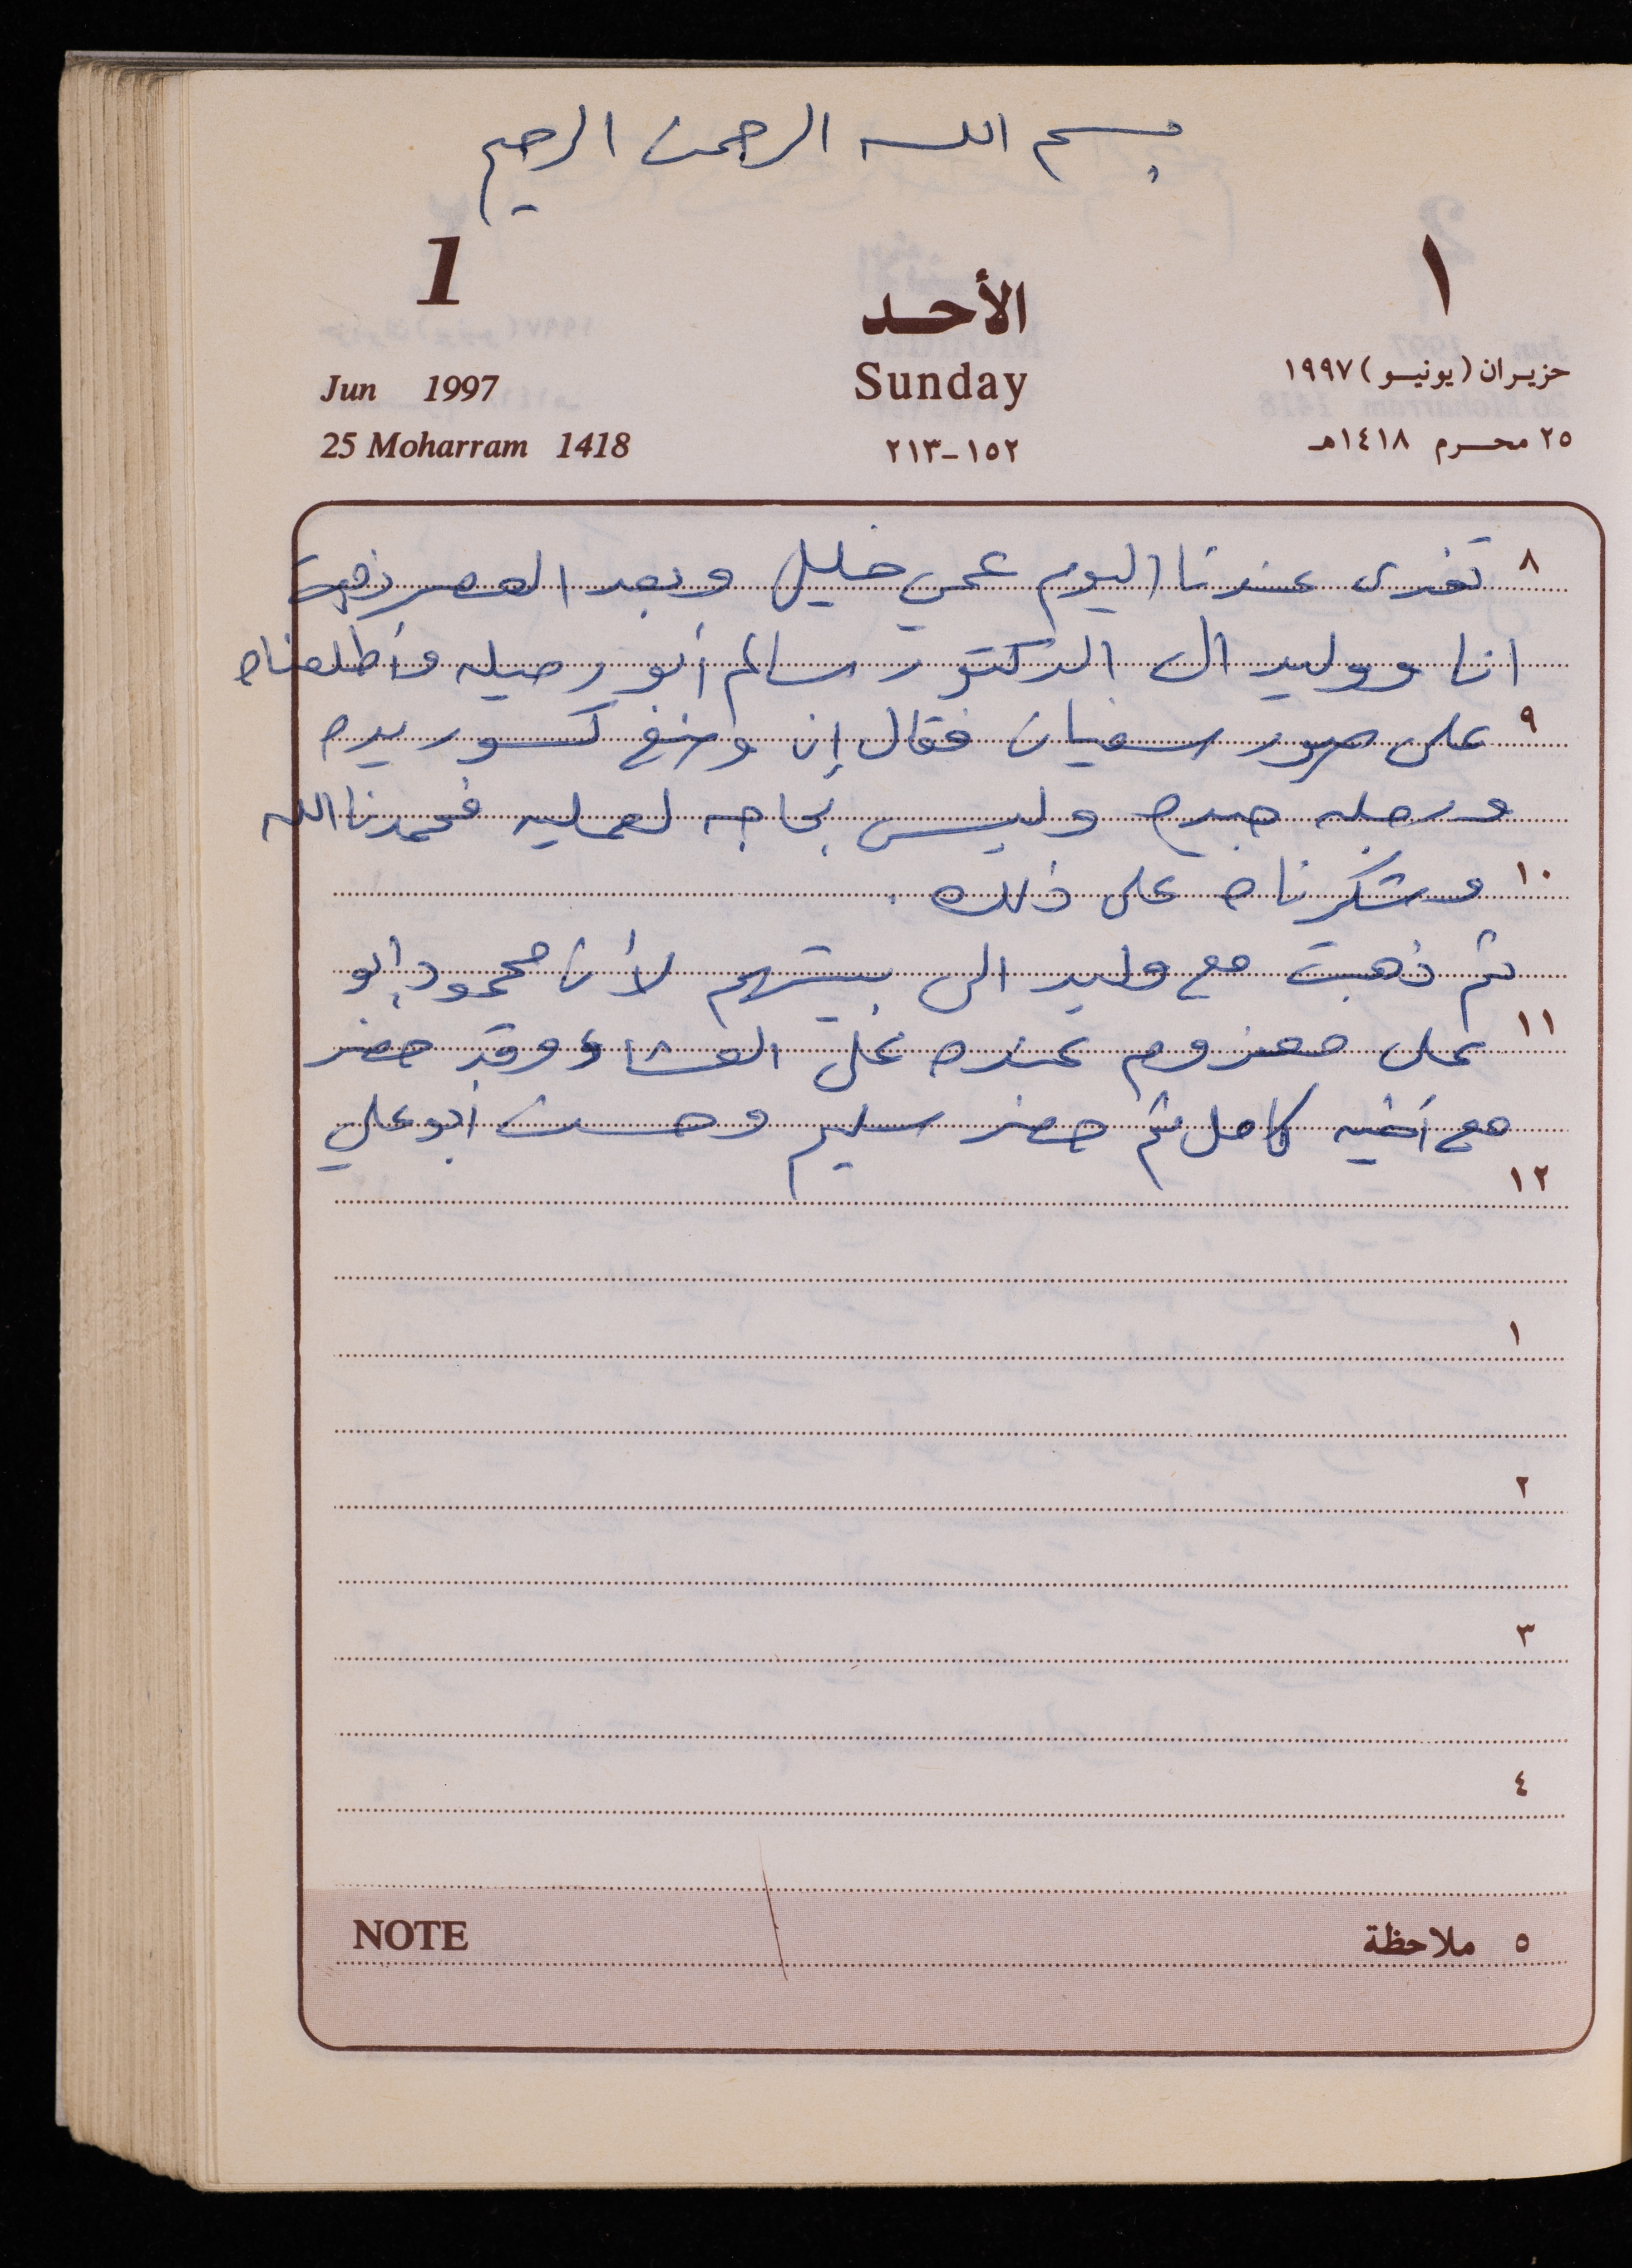 بسم الله الرحمن الرحيم
1 الأحد ١
Jun 1997 Sunday حزيران (يونيو) ١٩٩٧
25 Moharram 1418 ١٥٢-٢١٣ ٢٥ محرم ١٤١٨هـ
٨ تغدى عندنا اليوم عمي خليل وبعد العصر ذهبت
انا ووليد الى الدكتور سالم أبو رحيله وأطلعناه
٩ على صور سفيان فقال إن وضع كسور يده
ورجله جيده وليس بحاجه لعمليه فحمدنا الله
١٠ وشكرناه على ذلك .
ثم ذهبت مع وليد الى بيتهم لأن محمود ابو
١١ علي معزوم عنده على العشاء وقد حضر
مع أخيه كامل ثم حضر سليم وحسن ابو علي
١٢
١
٢
٣
٤
NOTE ٥ ملاحظة